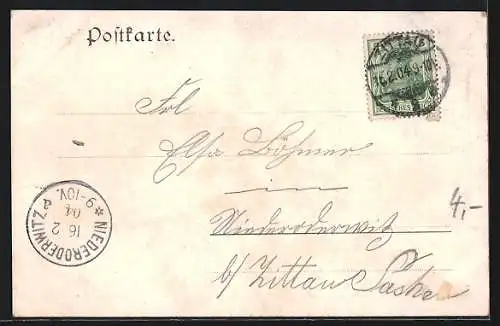 Postkarte.
ZITTAU
16.2.04.9-10V
Frl
Elsa Böhmer
in
Niederoderwitz
b/ Zittau Sachsen
4,-
* NIEDERODERWITZ
16 2
04
9-10V.